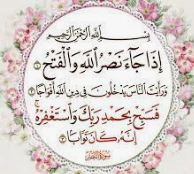 بسم الله الرحمن الرحيم
إِذَا جَآءَ نَصْرُ اللَّهِ وَالْفَتْحُ
وَرَأَيْتَ النَّاسَ يَدْخُلُونَ فِي دِينِ اللَّهِ أَفْوَاجًا
فَسَبِّحْ بِحَمْدِ رَبِّكَ وَاسْتَغْفِرْهُ
إِنَّهُ كَانَ تَوَّابًا